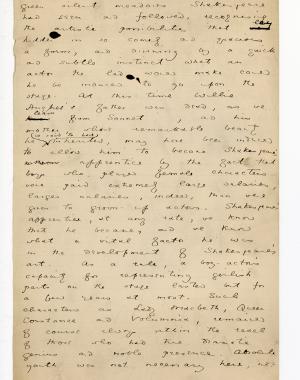 green silent meadows Shakespeare
had seen and followed, recognising
the artistic possibilities that lay
hidden in so comely and gracious
a form, and divining by a quick
and subtle instinct what an
actor the lad would make could
he be induced to go upon the
stage. At this time Willie
Hughes's father was dead, as we
learn from Sonnet , and his
mother whose remarkable beauty
he inherited, may have been induced
to allow him to become Shakespeare's
apprentice by the fact that
boys who played female characters
were paid extremely large salaries,
larger salaries, indeed, than were
given to grown-up actors. Shakespeare's
apprentice, at any rate, we know
that he became, and we know
what a vital factor he was
in the development of Shakespeare's
art. As a rule, a boy-actor's
capacity for representing girlish
parts on the stage lasted but for
a few years at most. Such
characters as Lady Macbeth, Queen
Constance and Volumnia, remained
of course always within the reach
of those who had true dramatic
genius and noble presence. Absolute
youth was not necessary here, not